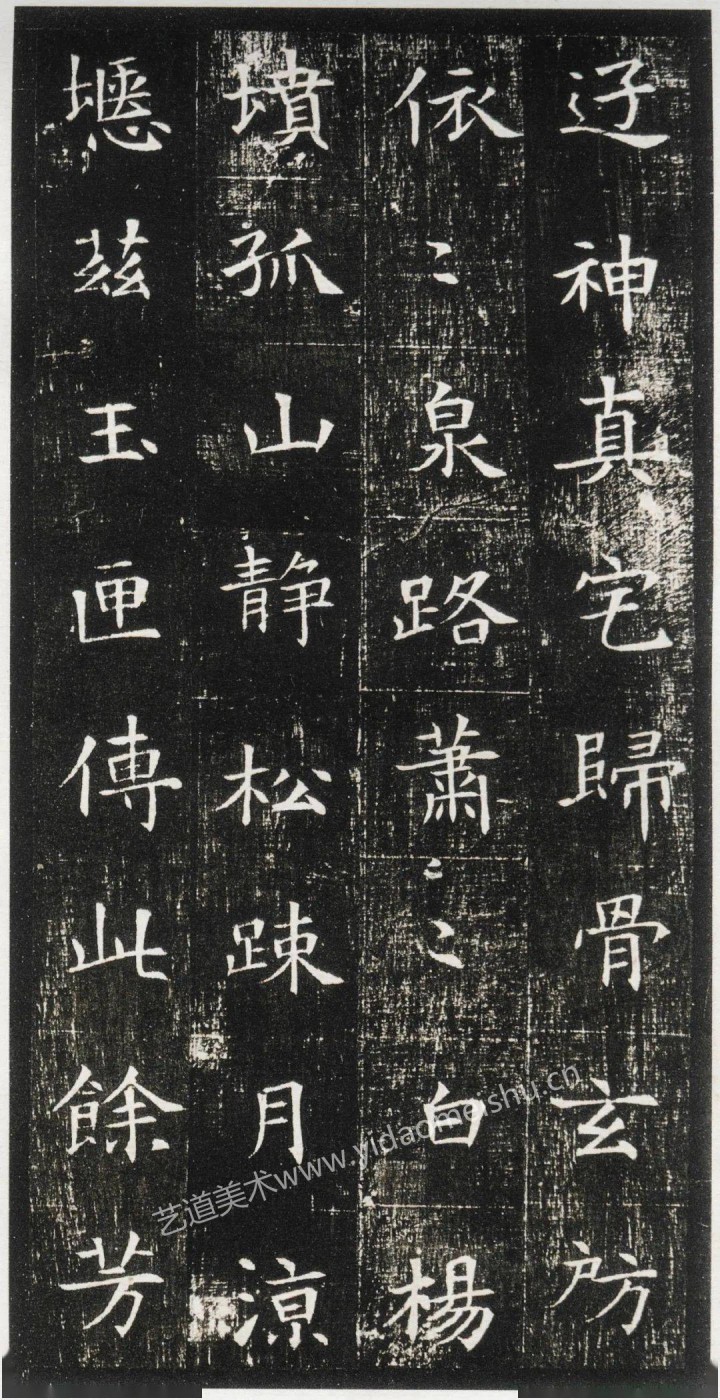 辽神真宅歸骨玄房
依〻泉路蕭〻白楊
墳孤山静松踈月涼
瘱兹玉匣傳此餘芳
艺道美术www.yidaomeishu.cn